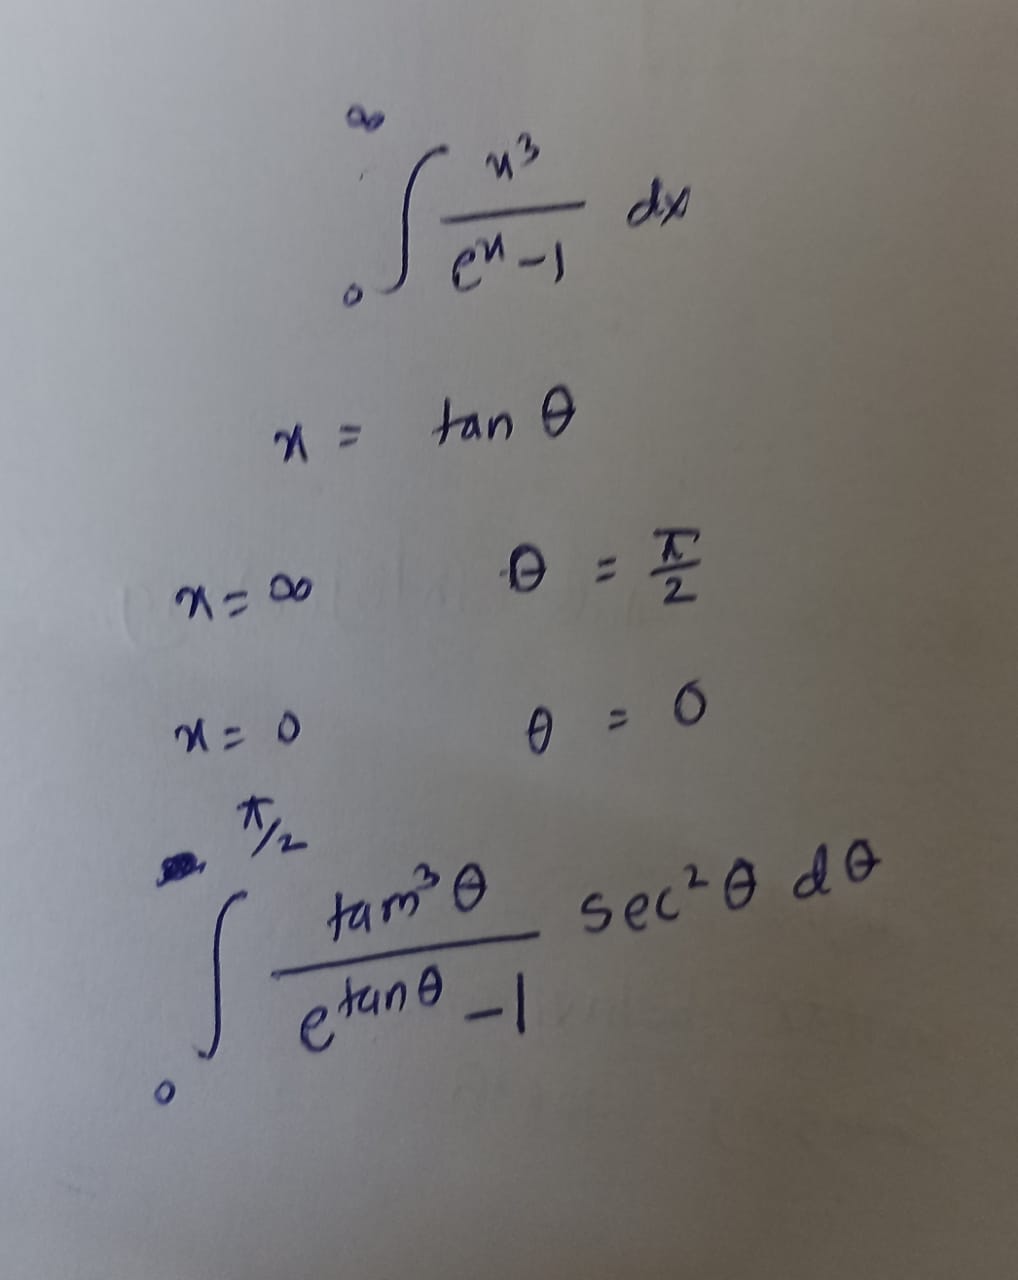 ∫₀^∞ x³/(eˣ-1) dx
x = tan θ
x = ∞ θ = π/2
x = 0 θ = 0
∫₀^(π/2) tan³θ/(e^(tanθ) -1) sec²θ dθ